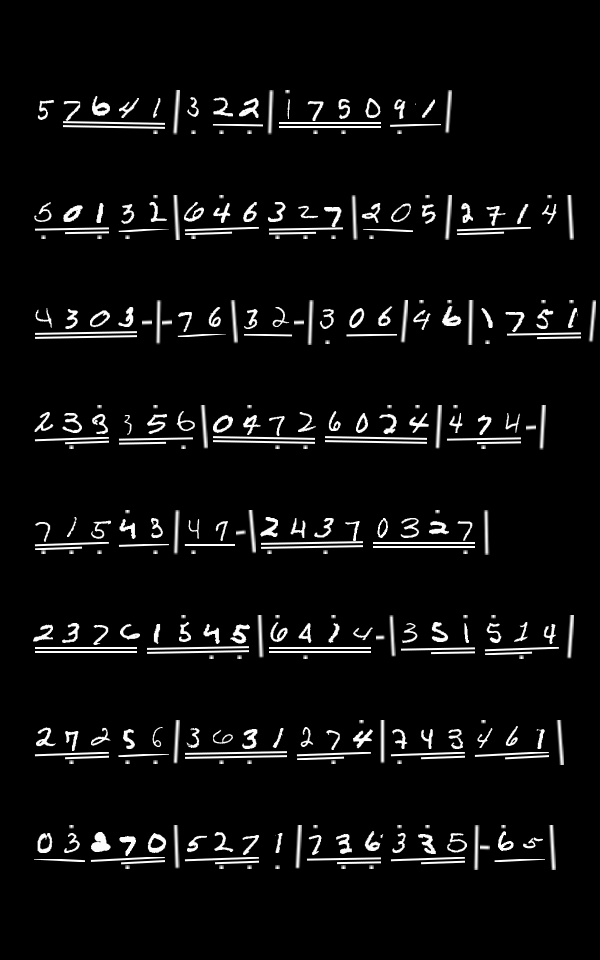 5 7 6 4 1 | 3 2 2 | 1 7 5 0 9 1 |
5 0 1 3 2 | 6 4 6 3 2 7 | 2 0 5 | 2 7 1 4 |
4 3 0 3 - | - 7 6 | 3 2 - | 3 0 6 | 4 6 | 1 7 5 1 |
2 3 3 3 5 6 | 0 4 7 2 6 0 2 4 | 4 7 4 - |
7 1 5 4 3 | 4 7 - | 2 4 3 7 0 3 2 7 |
2 3 7 6 1 5 4 5 | 6 4 1 4 - | 3 5 1 5 1 4 |
2 7 2 5 6 | 3 6 3 1 2 7 4 | 7 4 3 4 6 1 |
0 3 2 7 0 | 5 2 7 1 | 7 3 6 3 3 5 | - 6 5 |